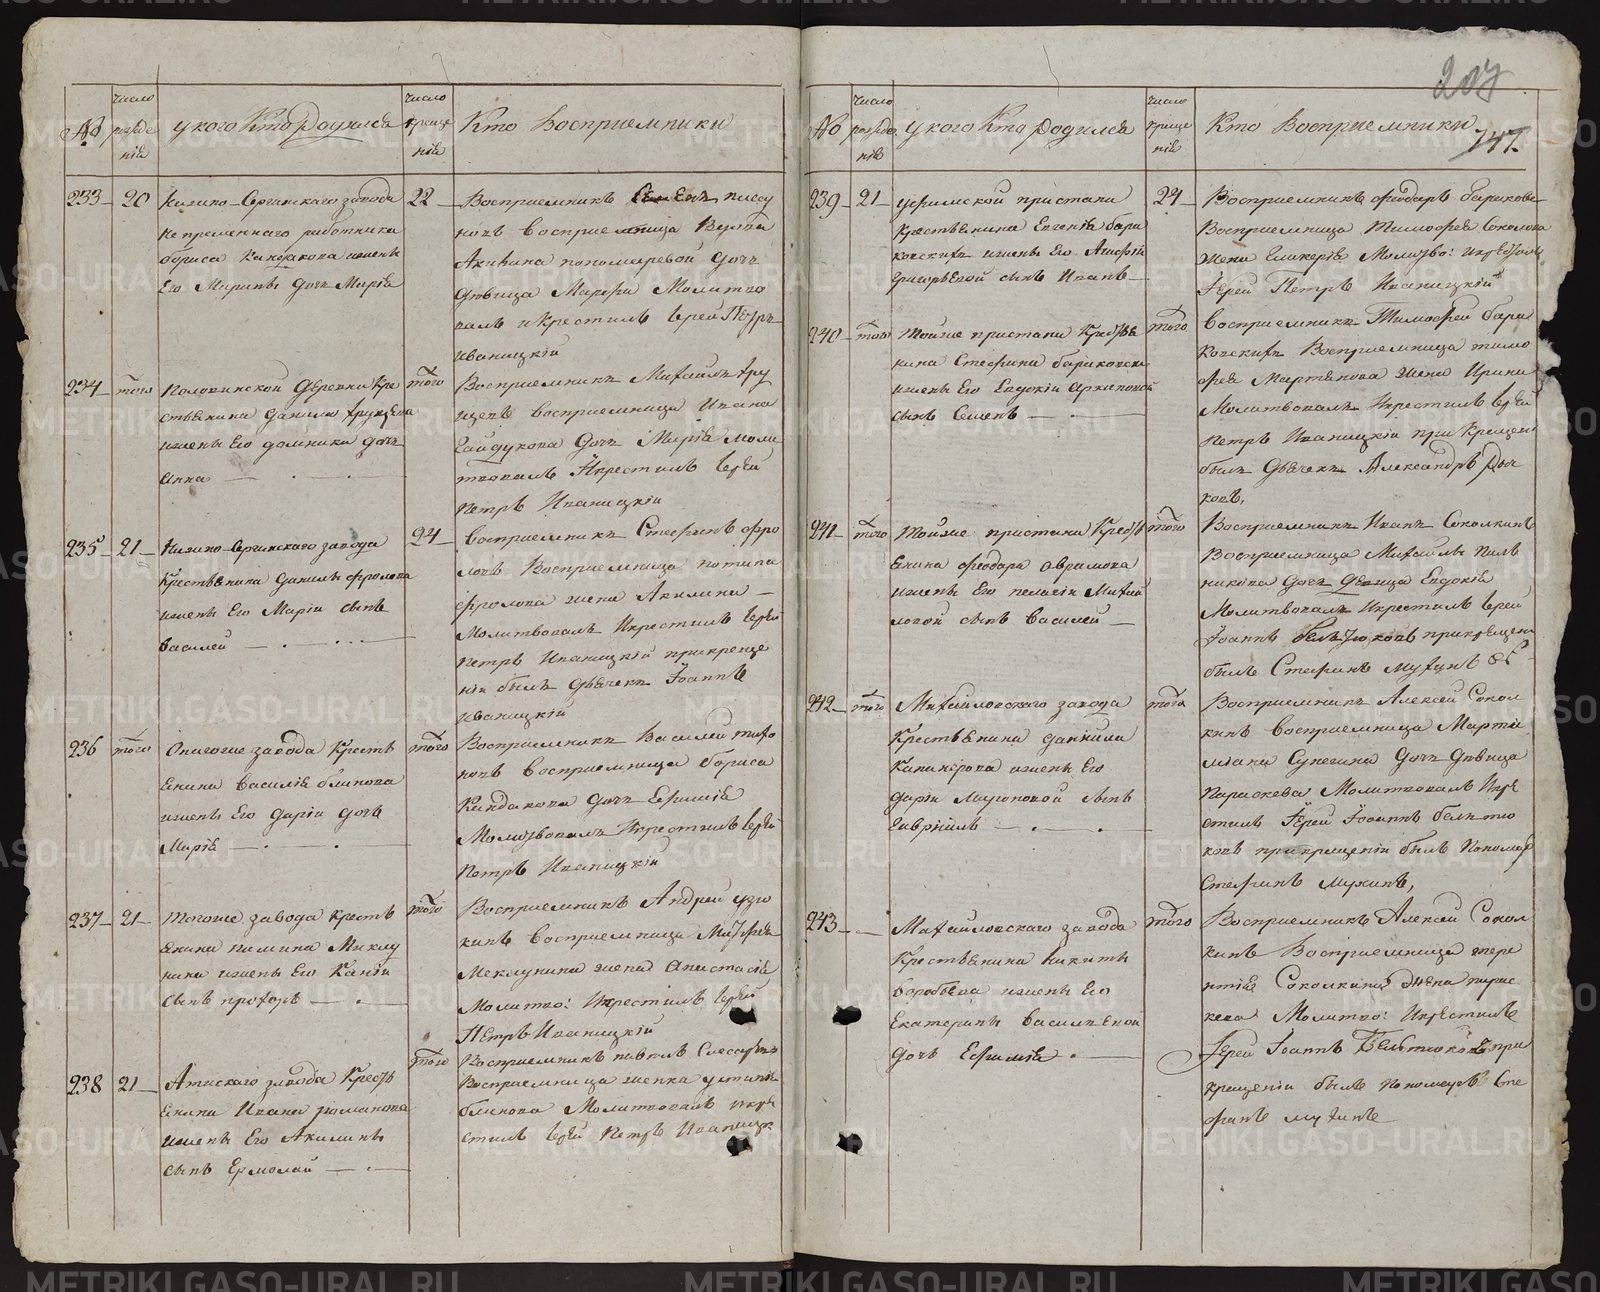 207
747.
№
число рожде нія
у кого Кто Родился
число креще нія
Кто Восприемники
233 20
Нижно-Сергинскаго завода
непременнаго работника
бориса Кандакова жены
Его Марины дочь Марія
22
Восприемникъ
новъ Восприемница
пономаревой дочь
девица Марфа Молитво
валъ и Крестилъ Іерей Петръ
иваницкій
234 того
Половинской деревни Кре
стьянина данила
жены Его домники дочь
Анна
того
Восприемникъ Михаилъ
восприемница Ивана
Гайдукова дочь Марія моли
твовалъ и Крестилъ Іерей
Петръ Иваницкій
235 21
Нижно-Сергинскаго завода
Крестьянина данилы фролова
жены Его Маріи сынъ
Василей
24
восприемникъ Стефанъ фро
ловъ Восприемница потапа
фролова жена Акилина
Молитвовалъ и Крестилъ Іерей
Петръ Иваницкій при креще
ніи былъ дьячекъ Іоаннъ
иваницкій
236 того
Онагоже завода Кресть
янина Василія блинова
жены Его даріи дочь
Марія
того
Восприемникъ Василей тихо
новъ восприемница бориса
Кандакова дочь Ефимія
Молитвовалъ и Крестилъ Іерей
Петръ Иваницкій
237 21
Тогоже завода кресть
янина пимина Миклу
нина жены Его Ксніи
сынъ прохоръ
того
Восприемникъ Андрей
кинъ восприемница
Меклунина жена Анастасія
Молитво: и Крестилъ Іерей
Петръ Иваницкій
238 21
Атигскаго завода Кресть
янина Ивана романова
жены Его Акилины
сынъ Ермолай
того
Восприемникъ павелъ
Восприемница женка устинья
блинова Молитвовалъ и кре
стилъ Іерей Петръ Иваницк
№
число рожде нія
у кого Кто Родился
число креще нія
Кто Восприемники
239 21
уфимской пристани
крестьянина Евгенія бари
ковскихъ жены Его Анфіи
григорьевой сынъ Иванъ
24
Восприемникъ федоръ бариков
Восприемница Тимофея Соколова
жена Гликерія Молитво: и крестилъ
Іерей Петръ Иваницкій
240 того
Тойже пристани Кресть
нина Стефана бариковски
жены Его Евдокіи архиповой
сынъ Семенъ
того
восприемникъ Тимофей бари
ковскихъ Восприемница тимо
фея Мартынова жена Ирина
Молитвовалъ и крестилъ Іерей
Петръ Иваницкій при крещени
былъ дьячекъ Александръ Рыч
ковъ,
241 того
Тойже пристани Кресть
янина федора аврамова
жены Его пелагіи Михай
ловой сынъ Василей
того
Восприемникъ Иванъ Соколкинъ
Восприемница Михаилы
никова дочь девица Евдокія
Молитвовалъ и крестилъ Іерей
Іоаннъ бельтюковъ при крещени
былъ Стефанъ мухинъ
242 того
Михайловскаго завода
Крестьянина даниила
жены Его
даріи Мироновой сынъ
Гаврііилъ
того
Восприемникъ Алексей Сокол
кинъ восприемница Марти
міана Сунегина дочь девица
Параскева Молитвовалъ и кре
стилъ Іерей Іоаннъ бельтю
ковъ при крещеніи былъ Пономар
Стефанъ мухинъ,
243
Михайловскаго завода
Крестьянина никиты
воробьева жены Его
Екатерины васильевой
дочь Ефимія
того
Восприемникъ Алексей Сокол
кинъ Восприемница тере
нтія Соколкина жена парас
кева Молитво: и Крестилъ
Іерей Іоаннъ Бельтюковъ при
крещеніи былъ пономарь Сте
фанъ мухинъ